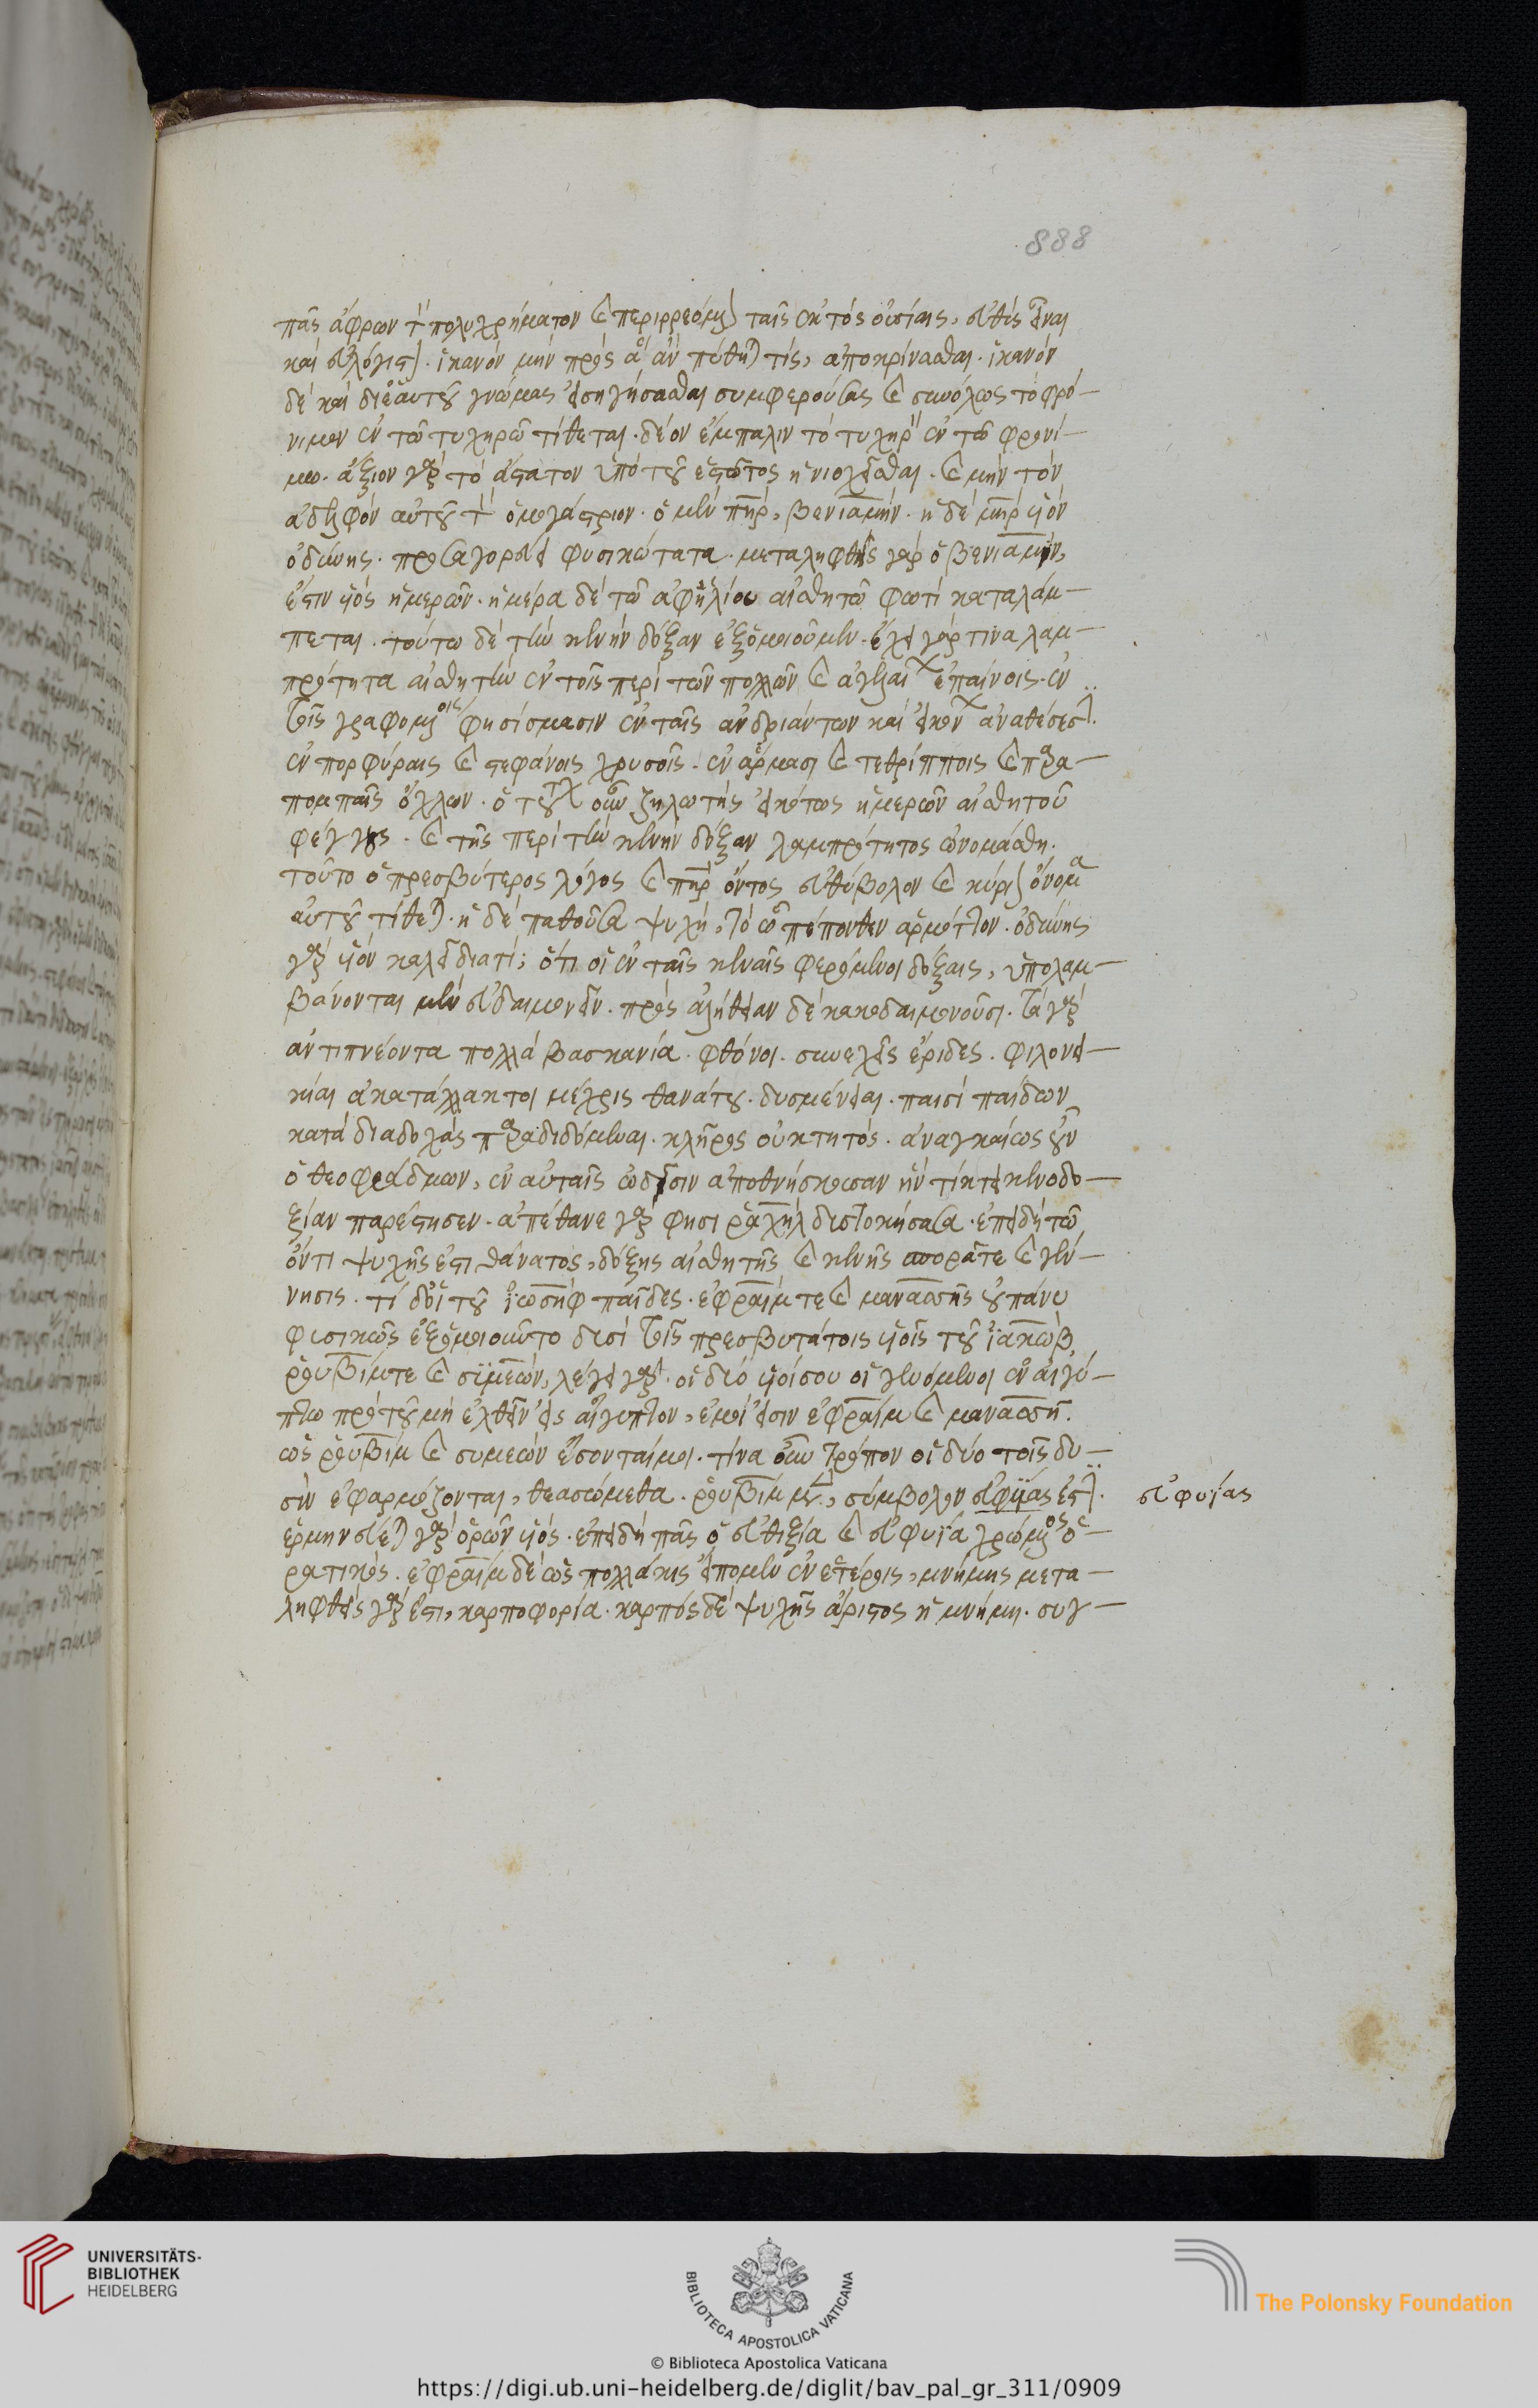 888
πᾶς ἄφρων τὸν πολυχρήματον καὶ περιρρεόμενον ταῖς ἐκτὸς οὐσίαις, εὐθὺς εἶναι
καὶ εὐλόγιστον. ἱκανὸν μὲν πρὸς ἃ ἂν πύθηταί τις, ἀποκρίνασθαι. ἱκανὸν
δὲ καὶ δι' ἑαυτοῦ γνώμας εἰσηγήσασθαι συμφερούσας καὶ συνόλως τὸ φρό-
νιμον ἐν τῶ τυχηρῶ τίθεται. δέον ἔμπαλιν τὸ τυχηρὸν ἐν τῶ φρονί-
μω. ἄξιον γὰρ τὸ ἄστατον ὑπὸ τοῦ ἑστῶτος ἡνιοχεῖσθαι. καὶ μὴν τὸν
ἀδελφὸν αὐτοῦ τὸν ὁμογάστριον. ὁ μὲν πηρ, βενιαμήν. ἡ δὲ μηρ υἱὸν
ὀδύνης. προσαγορεύει φυσικώτατα. μεταληφθεὶς γὰρ ὁ βενιαμὴν,
ἐστιν υἱὸς ἡμερῶν. ἡμέρα δὲ τῶ ἀφ' ἡλίου αἰσθητῶ φωτὶ καταλάμ-
πεται. τούτω δὲ τὴν κενὴν δόξαν ἐξομοιοῦμεν. ἔχει γάρ τινα λαμ-
πρότητα αἰσθητὴν ἐν τοῖς περὶ τῶν πολλῶν καὶ ἀγελαίων ἐπαίνοις. ἐν
τοῖς γραφομένοις ψηφίσμασιν ἐν ταῖς ἀνδριάντων καὶ εἰκόνων ἀναθέσεσιν.
ἐν πορφύραις καὶ στεφάνοις χρυσοῖς. ἐν ἅρμασι καὶ τεθρίπποις καὶ παρα-
πομπαῖς ὄχλων. ὁ τούτων οὖν ζηλωτὴς εἰκότως ἡμερῶν αἰσθητοῦ
φέγγους. καὶ τῆς περὶ τὴν κενὴν δόξαν λαμπρότητος ὠνομάσθη.
τοῦτο ὁ πρεσβύτερος λόγος καὶ πηρ ὄντος εὐθύβολον καὶ κύριον ὄνομα
αὐτοῦ τίθεται. ἡ δὲ παθοῦσα ψυχὴ, τὸ ᾧ πέπονθεν ἁρμόττον. ὀδύνης
γὰρ υἱὸν καλεῖ διατί; ὅτι οἱ ἐν ταῖς κεναῖς φερόμενοι δόξαις, ὑπολαμ-
βάνονται μὲν εὐδαιμονεῖν. πρὸς ἀλήθειαν δὲ κακοδαιμονοῦσι. τὰ γὰρ
ἀντιπνέοντα πολλὰ βασκανία. φθόνοι. συνεχεῖς ἔριδες. φιλονει-
κίαι ἀκατάλλακτοι μέχρις θανάτου. δυσμένειαι. παισὶ παίδων
κατὰ διαδοχὰς παραδιδόμεναι. κλῆρος οὐ κτητός. ἀναγκαίως οὖν
ὁ θεοφράδμων, ἐν αὐταῖς ὠδῖσιν ἀποθνήσκουσαν ἣν τίκτει κενοδο-
ξίαν παρέστησεν. ἀπέθανε γὰρ φησι ῥαχὴλ δυστοκήσασα. ἐπειδὴ τῶ
ὄντι ψυχῆς ἐστι θάνατος, δόξης αἰσθητῆς καὶ κενῆς σπορά τε καὶ γέν-
νησις. τί δ' οἱ τοῦ ἰωσὴφ παῖδες. ἐφραίμ τε καὶ μανασσῆς οὐ πάνυ
φυσικῶς ἐξομοιοῦντο δυσὶ τοῖς πρεσβυτάτοις υἱοῖς τοῦ ἰακώβ,
ῥουβίμ τε καὶ συμεών, λέγει γὰρ. οἱ δύο υἱοί σου οἱ γενόμενοι ἐν αἰγύ-
πτω πρὸ τοῦ μὴ ἐλθεῖν εἰς αἴγυπτον, ἐμοί εἰσιν ἐφραὶμ καὶ μανασσῆ.
ὡς ῥουβὶμ καὶ συμεὼν ἔσονταί μοι. τίνα οὖν τρόπον οἱ δύο τοῖς δυ-
σὶν ἐφαρμόζονται, θεασώμεθα. ῥουβὶμ μὲν, σύμβολον εὐφυΐας ἐστίν.
ἑρμηνεύεται γὰρ ὁρῶν υἱός. ἐπειδὴ πᾶς ὁ εὐθιξία καὶ εὐφυΐα χρώμενος ὁ-
ρατικός. ἐφραὶμ δὲ ὡς πολλάκις εἴπομεν ἐν ἑτέροις, μνήμης μετα-
ληφθεὶς γάρ ἐστι, καρποφορία. καρπὸς δὲ ψυχῆς ἄριστος ἡ μνήμη. συγ-
εὐφυΐας
UNIVERSITÄTS-
BIBLIOTHEK
HEIDELBERG
BIBLIOTECA APOSTOLICA VATICANA
The Polonsky Foundation
© Biblioteca Apostolica Vaticana
https://digi.ub.uni-heidelberg.de/diglit/bav_pal_gr_311/0909